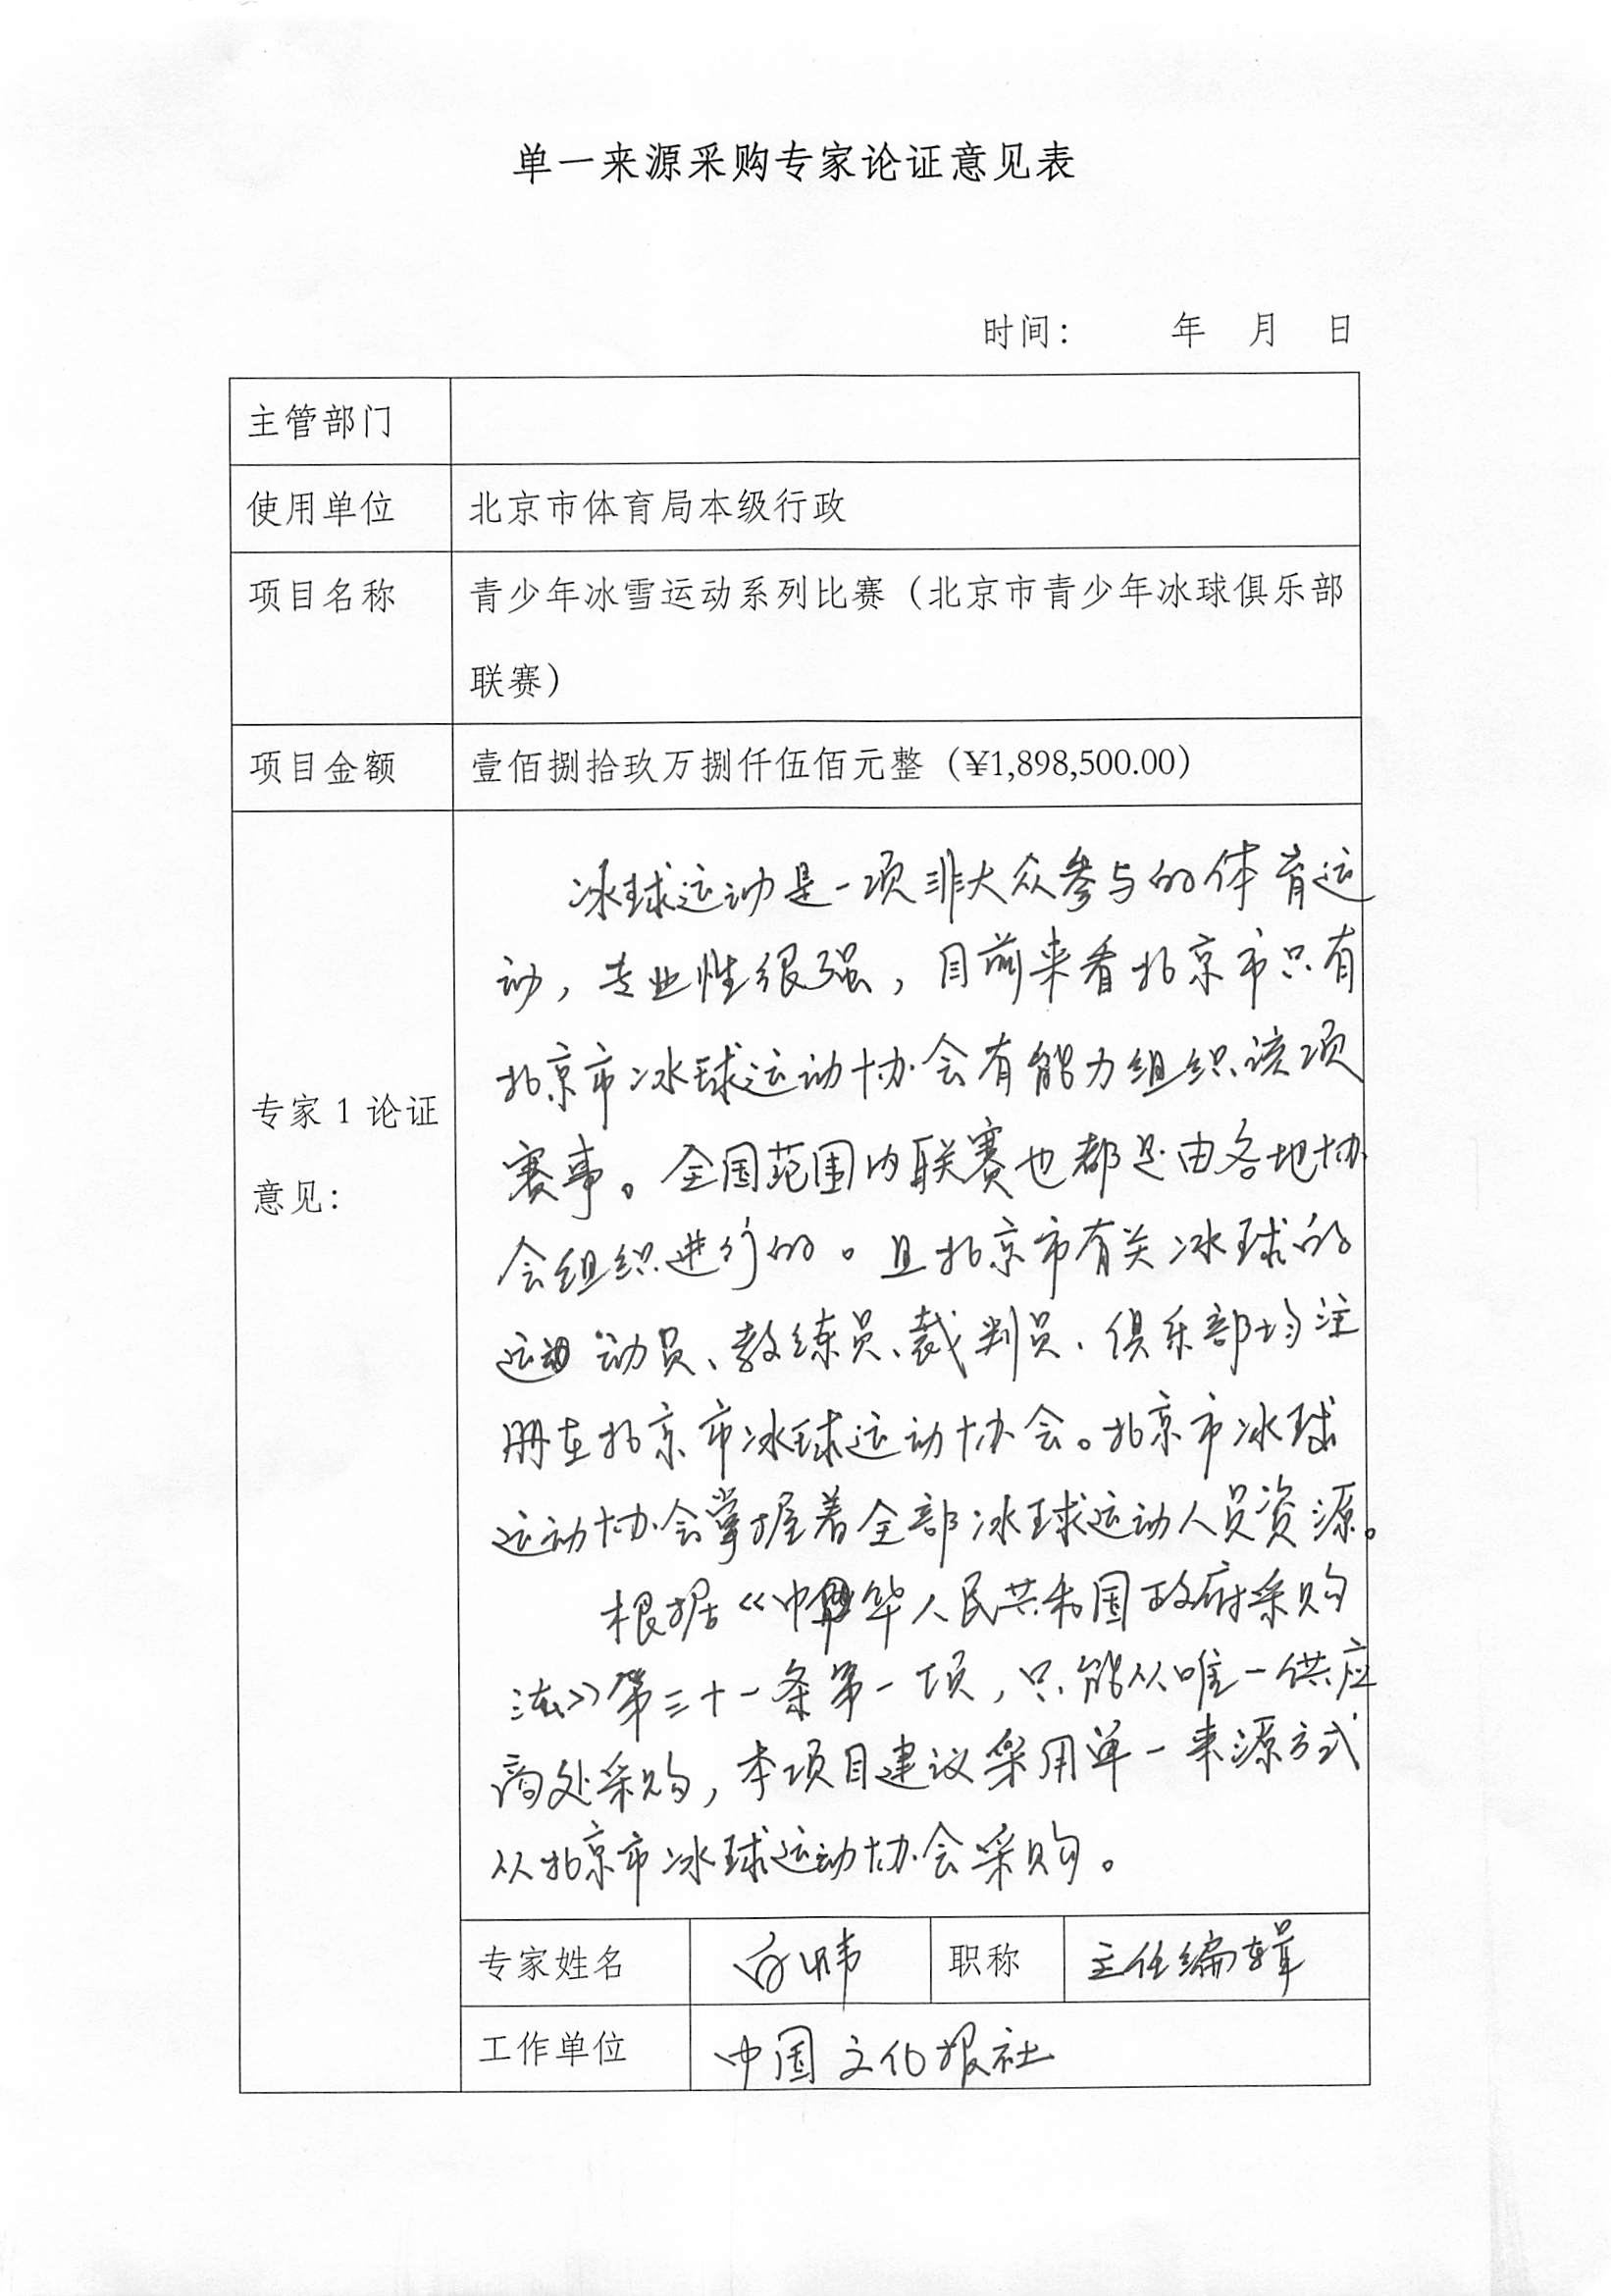 单一来源采购专家论证意见表
时间： 年 月 日
主管部门
使用单位 北京市体育局本级行政
项目名称 青少年冰雪运动系列比赛（北京市青少年冰球俱乐部
联赛）
项目金额 壹佰捌拾玖万捌仟伍佰元整（¥1,898,500.00）
专家1论证
意见：
冰球运动是一项非大众参与的体育运
动，专业性很强，目前来看北京市只有
北京市冰球运动协会有能力组织该项
赛事。全国范围内联赛也都是由各地协
会组织进行的。且北京市有关冰球的
运动员、教练员、裁判员、俱乐部均注
册在北京市冰球运动协会。北京市冰球
运动协会掌握着全部冰球运动人员资源。
根据《中华人民共和国政府采购
法》第三十一条第一项，只能从唯一供应
商处采购，本项目建议采用单一来源方式
从北京市冰球运动协会采购。
专家姓名 白炜 职称 主任编辑
工作单位 中国文化报社